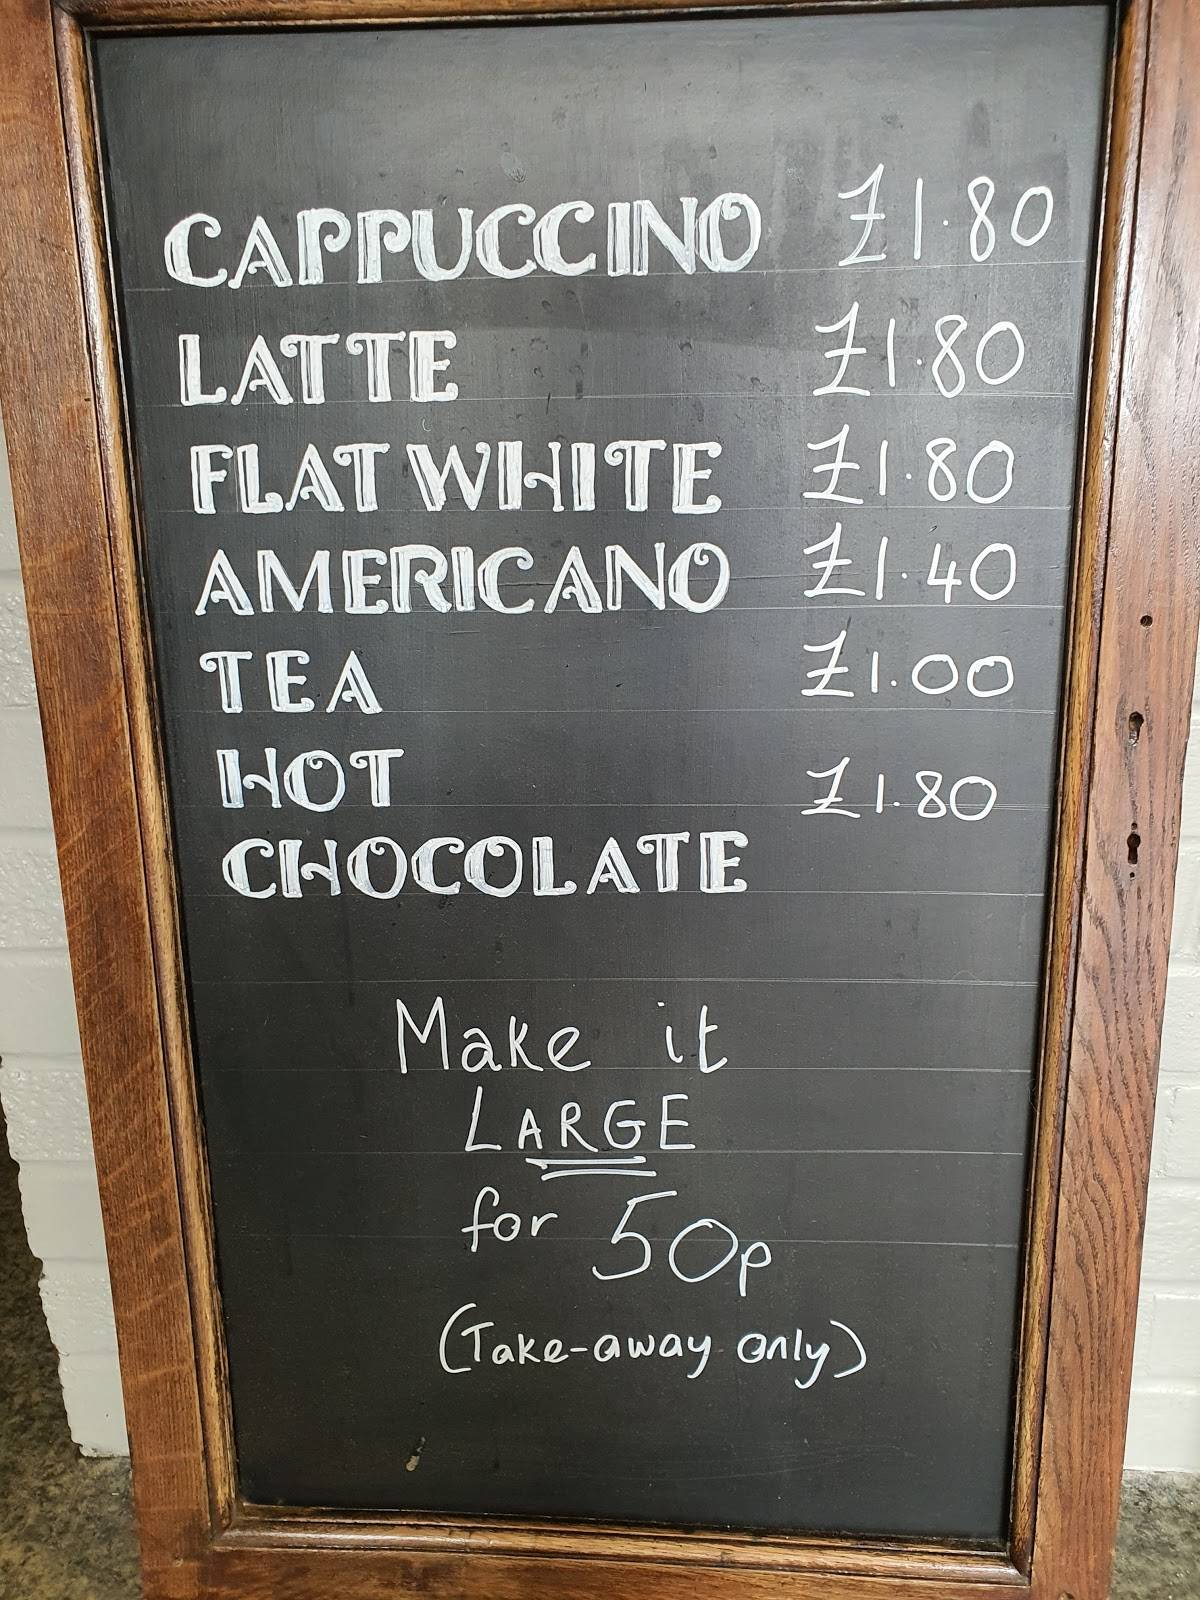 CAPPUCCINO £1.80
LATTE £1.80
FLAT WHITE £1.80
AMERICANO £1.40
TEA £1.00
HOT £1.80
CHOCOLATE
Make it
LARGE
for 50p
(Take-away only)